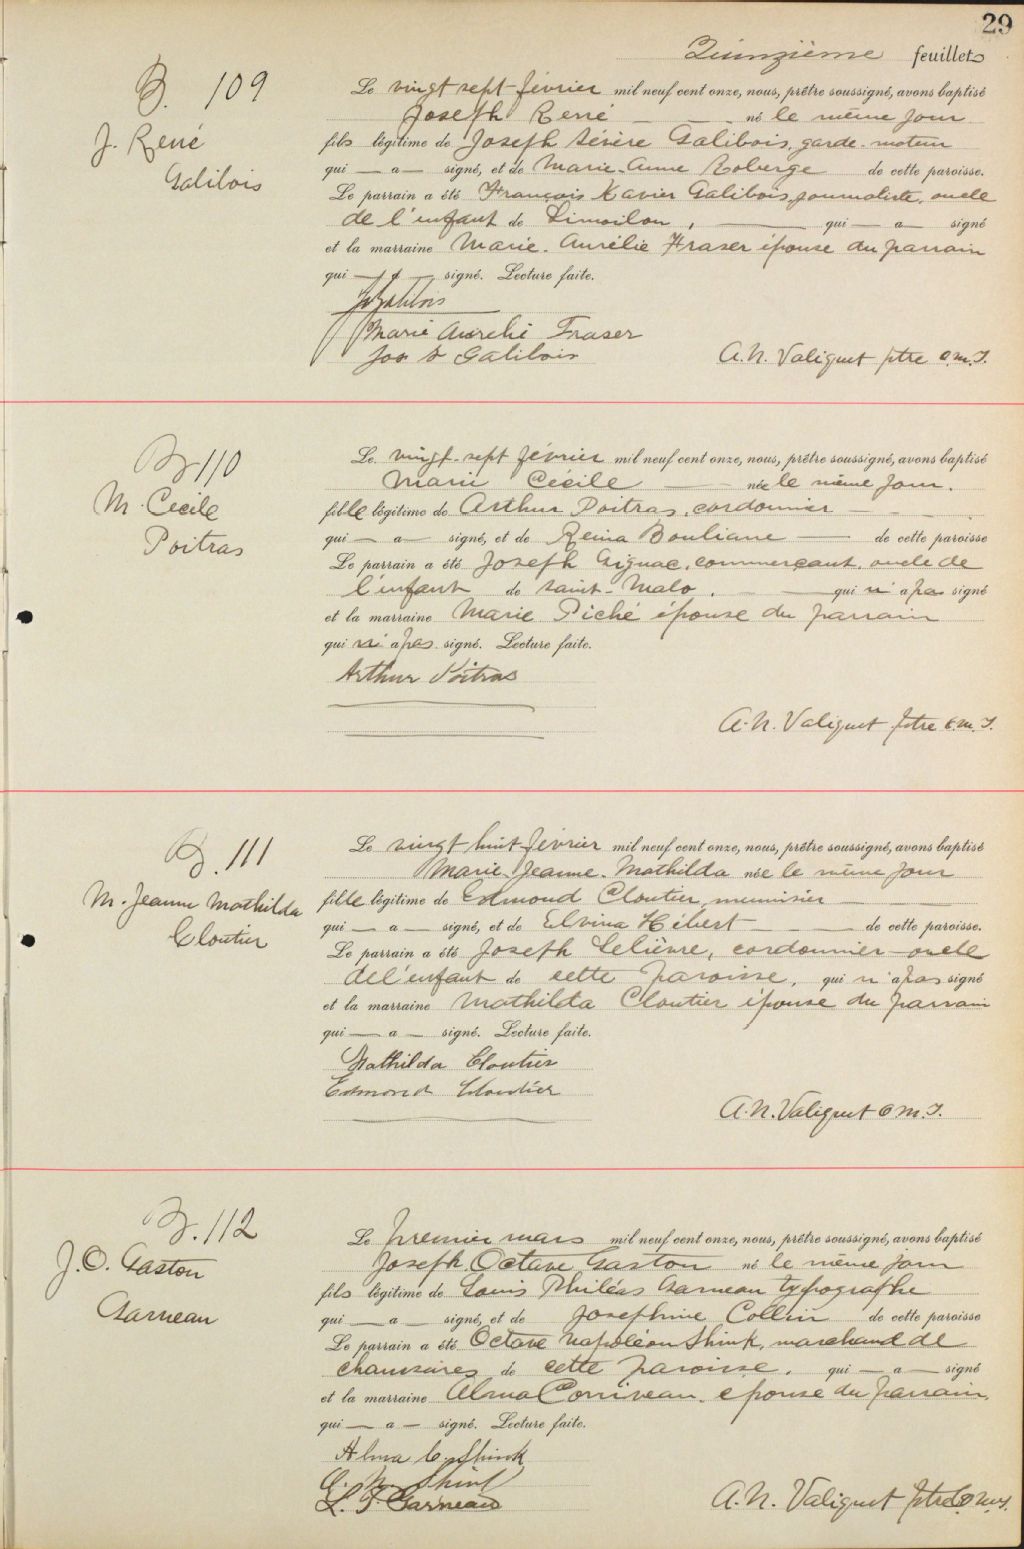 29
Quinzième feuillet
B. 109
J. René
Galibois
Le vingt sept février mil neuf cent onze, nous, prêtre soussigné, avons baptisé
Joseph René — — né le même jour
fils légitime de Joseph Sévère Galibois, garde-moteur
qui — a — signé, et de Marie-Anne Roberge de cette paroisse.
Le parrain a été François Xavier Galibois, journaliste, oncle
de l'enfant de Limoilou, — qui — a — signé
et la marraine Marie-Aurélie Fraser épouse du parrain
qui — a — signé. Lecture faite.
Galibois
Marie Aurelie Fraser
Jos S Galibois A.N. Valiquet ptre o.m.I.
B 110
M. Cecile
Poitras
Le vingt-sept février mil neuf cent onze, nous, prêtre soussigné, avons baptisé
Marie Cécile — née le même jour.
fille légitime de Arthur Poitras, cordonnier —
qui — a — signé, et de Reina Bouliane — de cette paroisse
Le parrain a été Joseph Gignac, commerçant, oncle de
l'enfant de Saint-Malo. — qui n'a pas signé
et la marraine Marie Piché épouse du parrain
qui n'a pas signé. Lecture faite.
Arthur Poitras
A.N. Valiquet ptre o.m.I.
B. 111
M. Jeanne Mathilda
Cloutier
Le vingt huit février mil neuf cent onze, nous, prêtre soussigné, avons baptisé
Marie Jeanne-Mathilda née le même jour
fille légitime de Edmond Cloutier, menuisier —
qui — a — signé, et de Elvina Hébert — de cette paroisse.
Le parrain a été Joseph Lelièvre, cordonnier oncle
de l'enfant de cette paroisse, qui n'a pas signé
et la marraine Mathilda Cloutier épouse du parrain
qui — a — signé. Lecture faite.
Mathilda Cloutier
Edmond Cloutier
A.N. Valiquet o m.I.
B. 112
J.O. Gaston
Garneau
Le premier mars mil neuf cent onze, nous, prêtre soussigné, avons baptisé
Joseph Octave Gaston né le même jour
fils légitime de Louis Philéas Garneau typographe
qui — a — signé, et de Josephine Collin de cette paroisse
Le parrain a été Octave Napoléon Shink, marchand de
chaussures de cette paroisse. qui — a — signé
et la marraine Alma Corriveau épouse du parrain,
qui — a — signé. Lecture faite.
Alma C. Shink
O. N. Shink
L. P. Garneau A.N. Valiquet ptre o.m.I.